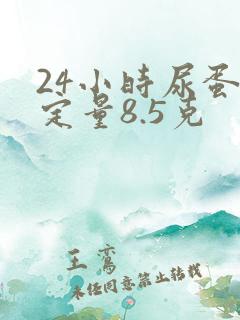 24小时尿蛋
定量8.5克
王鸾
未经同意禁止转载